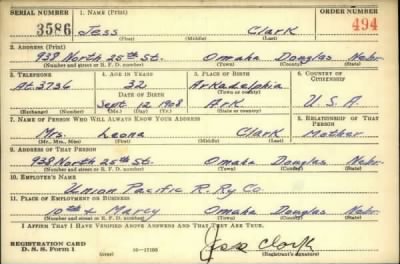 SERIAL NUMBER 1. NAME (Print) ORDER NUMBER
3586 Jess Clark 494
(First) (Middle) (Last)
2. ADDRESS (Print)
938 North 25th St. Omaha Douglas Nebr.
(Number and street or R. F. D. number) (Town) (County) (State)
3. TELEPHONE 4. AGE IN YEARS 5. PLACE OF BIRTH 6. COUNTRY OF CITIZENSHIP
At. 3736 32 Arkadelphia
DATE OF BIRTH (Town or county)
Sept. 12 1908 Ark U.S.A.
(Exchange) (Number) (Mo.) (Day) (Yr.) (State or country)
7. NAME OF PERSON WHO WILL ALWAYS KNOW YOUR ADDRESS 8. RELATIONSHIP OF THAT PERSON
Mrs. Leona Clark Mother
(Mr., Mrs., Miss) (First) (Middle) (Last)
9. ADDRESS OF THAT PERSON
938 North 25th St. Omaha Douglas Nebr.
(Number and street or R. F. D. number) (Town) (County) (State)
10. EMPLOYER'S NAME
Union Pacific R. Ry Co.
11. PLACE OF EMPLOYMENT OR BUSINESS
10th & Marcy Omaha Douglas Nebr.
(Number and street or R. F. D. number) (Town) (County) (State)
I AFFIRM THAT I HAVE VERIFIED ABOVE ANSWERS AND THAT THEY ARE TRUE.
REGISTRATION CARD Jess Clark
D. S. S. Form 1 (over) (Registrant's signature)